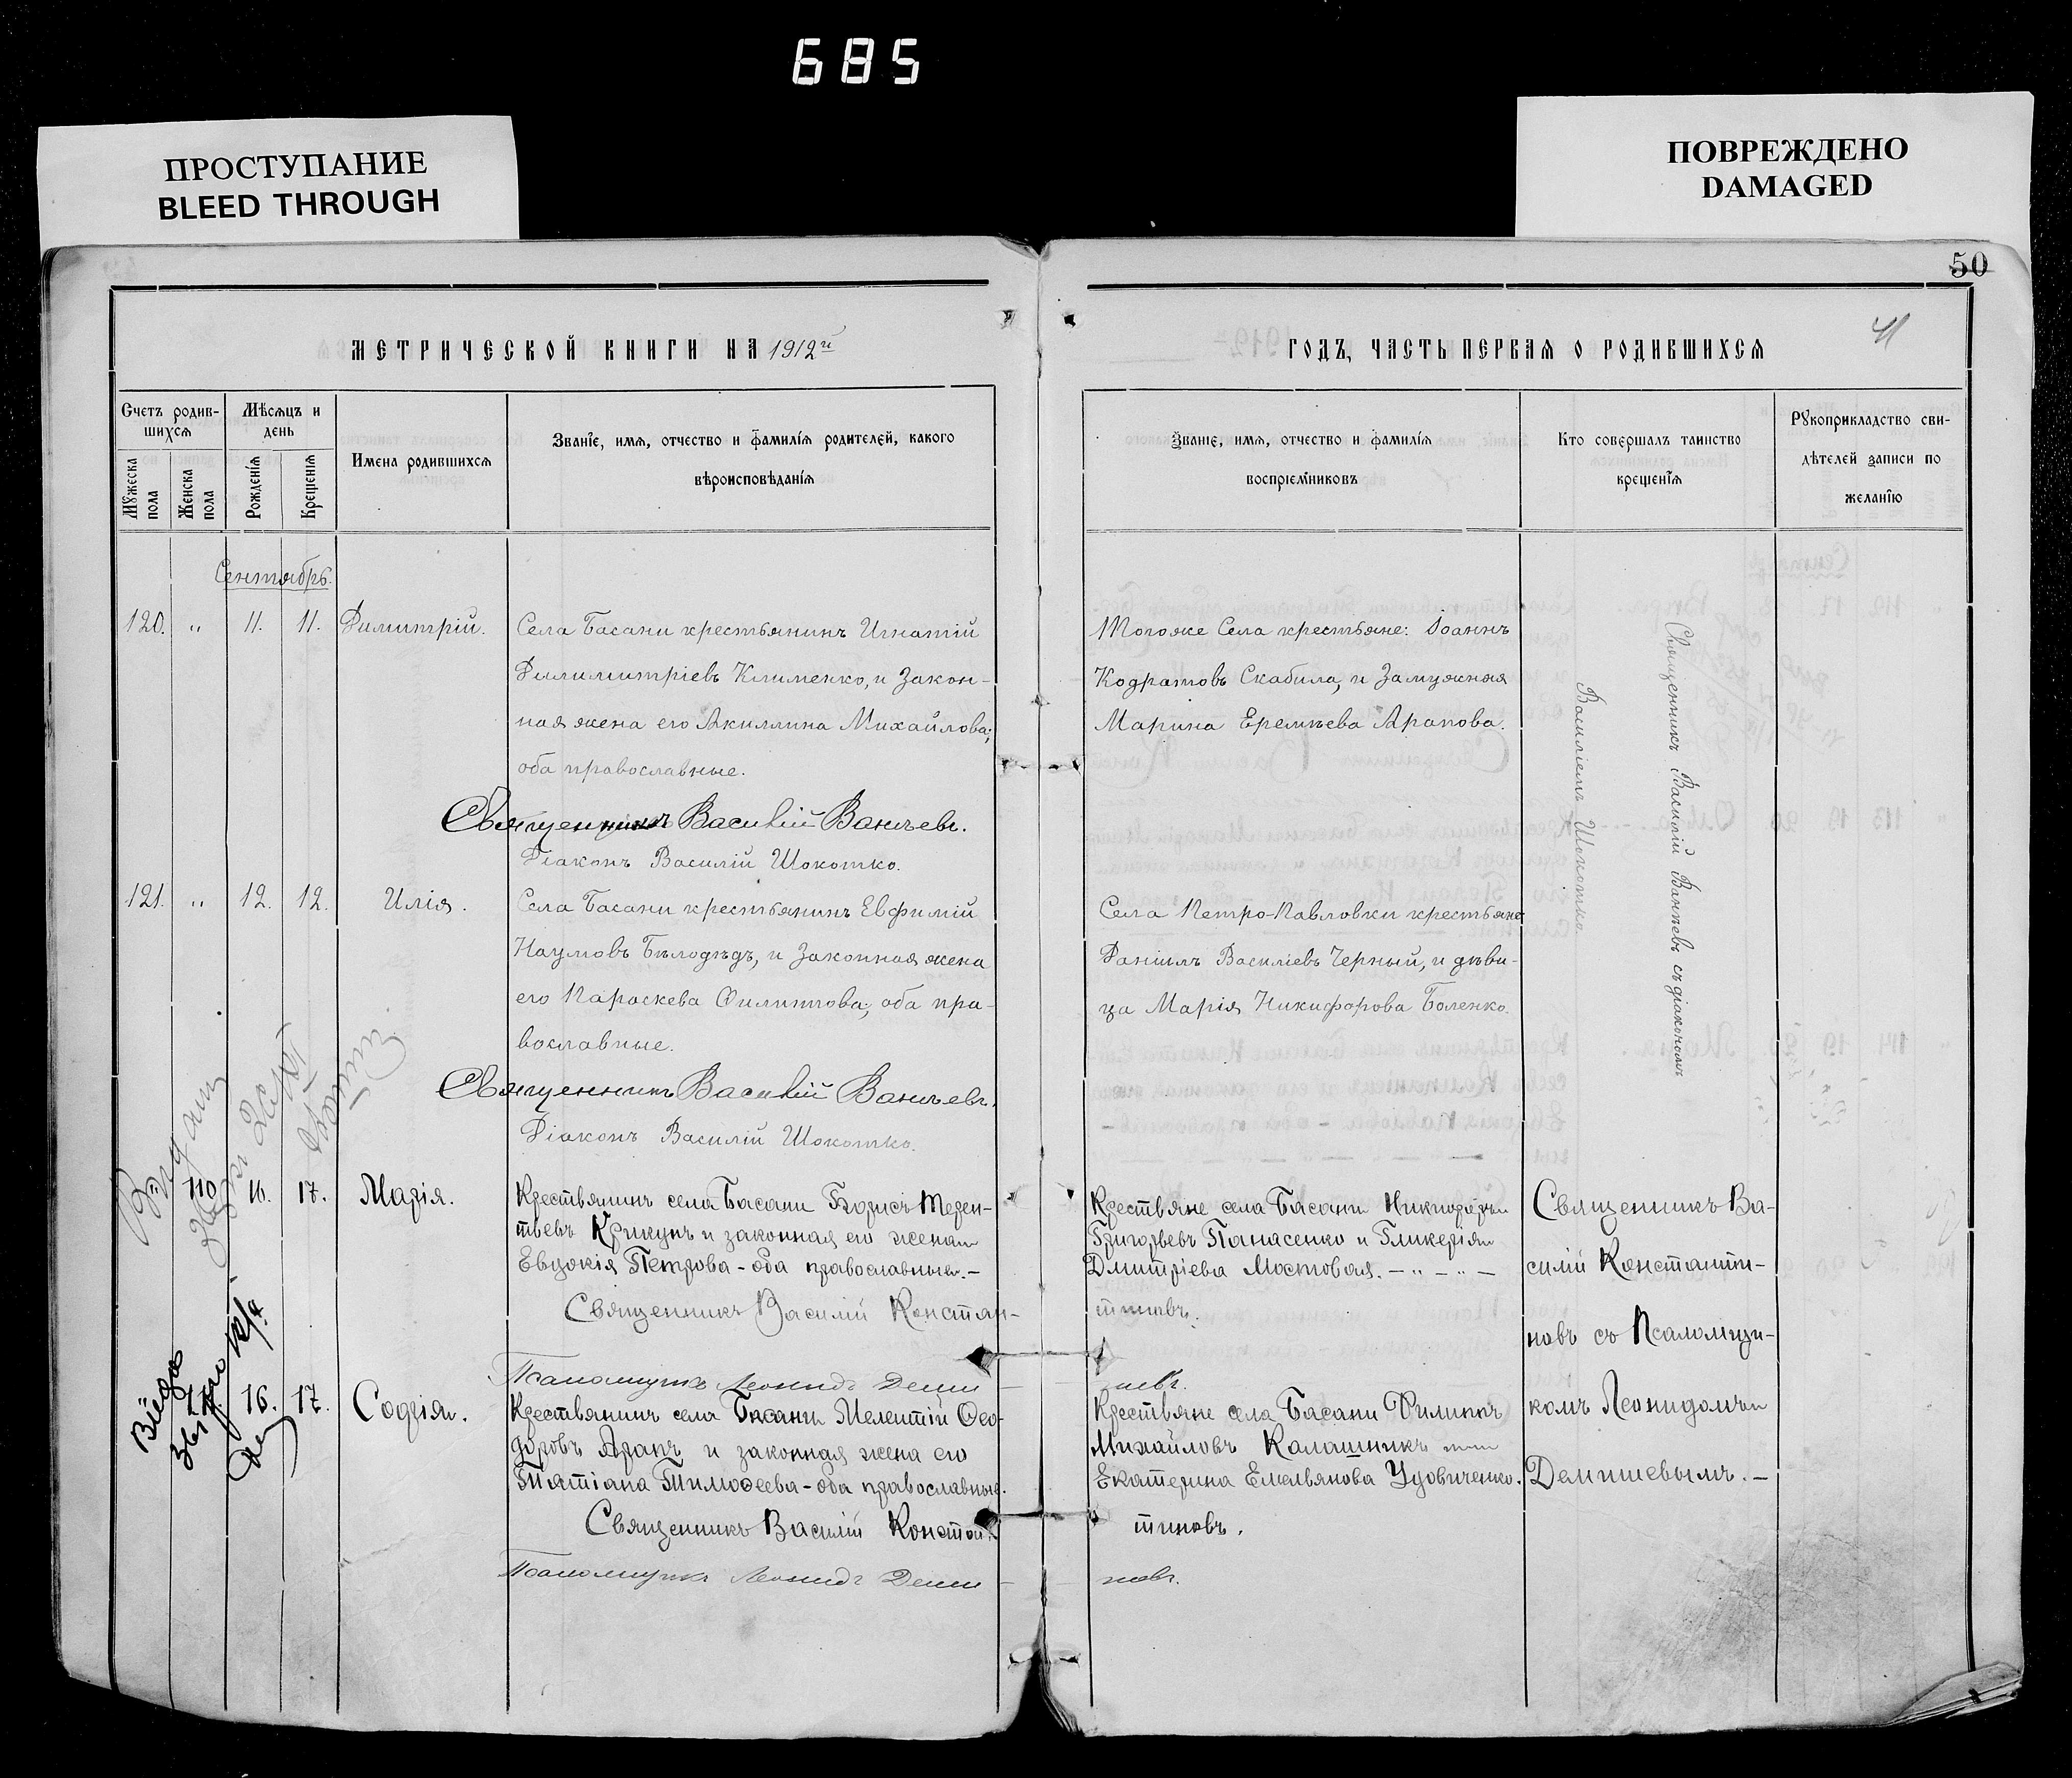 685
ПРОСТУПАНИЕ
BLEED THROUGH
ПОВРЕЖДЕНО
DAMAGED
50
41
МЕТРИЧЕСКОЙ КНИГИ НА 1912й
Счетъ родив-
шихся
Мѣсяцъ и
день
Мужеска
пола
Женска
пола
Рожденія
Крещенія
Имена родившихся
Званіе, имя, отчество и фамилія родителей, какого
вѣроисповѣданія
Сентябрь.
120. " 11. 11. Димитрій.
Села Басани крестьянинъ Игнатій
Димитріевъ Клименко, и закон-
ная жена его Акиллина Михайлова;
оба православные.
Священникъ Василій Ванчевъ.
Діаконъ Василій Шокотко.
121. " 12. 12. Илія.
Села Басани крестьянинъ Евфимій
Наумовъ Бѣлодѣдъ, и законная жена
его Параскева Филиппова; оба пра-
вославные.
Священникъ Василій Ванчевъ.
Діаконъ Василій Шокотко.
110 16. 17. Марія.
Крестьянинъ села Басани Борисъ Терен-
тьевъ Крикунъ и законная его жена
Евдокія Петрова - оба православные. -
Священникъ Василій Констан-
Псаломщикъ Леонидъ Деми
16. 17. Софія.
Крестьянинъ села Басани Мелетій Ѳео-
доровъ Арапъ и законная жена его
Татіана Тимоѳеева - оба православные.
Священникъ Василій Констан-
Псаломщикъ Леонидъ Деми -
Выдан
ГОДЪ, ЧАСТЬ ПЕРВАЯ О РОДИВШИХСЯ
Званіе, имя, отчество и фамилія
воспріемниковъ
Кто совершалъ таинство
крещенія
Рукоприкладство сви-
дѣтелей записи по
желанію
Тогоже Села крестьяне: Іоаннъ
Кодратовъ Скабила, и замужняя
Марина Еремѣева Арапова.
Села Петро-Павловки крестьяне
Даніилъ Василіевъ Черный, и дѣви-
ца Марія Никифорова Боленко.
Священникъ Василій Ванчевъ съ діакономъ
Василіемъ Шокотко.
Крестьяне села Басани Никифоръ
Григорьевъ Панасенко и Гликерія
Дмитріева Мостовая. - " - " -
тиновъ.
невъ.
Крестьяне села Басани Филиппъ
Михайловъ Калашникъ
Екатерина Емельянова Удовиченко.
тиновъ.
новъ.
Священникъ Ва-
силій Констант-
новъ съ Псаломщи-
комъ Леонидомъ
Демишевымъ. -